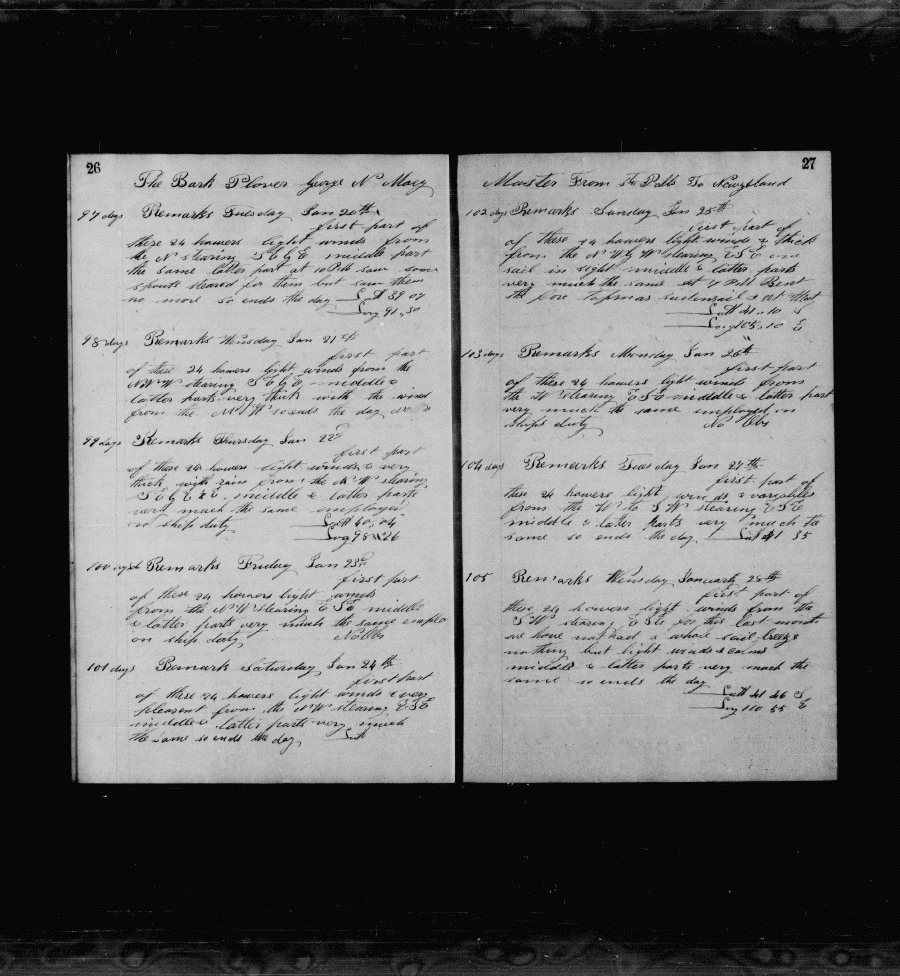 26
The Bark Plover George N Macy
97 days Remarks Tuesday Jan 20th
first part of
these 24 howers light winds from
the N stearing SEbE middle part
the same latter part at 10 PM saw some
spouts steared for them but saw them
no more so ends the day Latt 39 07
Long 91..30
98 days Remarks Wensday Jan 21st
first part
of these 24 howers light winds from the
NWW stearing SEbE middle &
latter parts very thick with the wind
from the NW so ends the day
99 days Remarks Thursday Jan 22d
first part
of these 24 howers light winds & very
thick with rain from the NW stearing
SEbE &E middle & latter parts
very much the same employed
on ship duty Latt 40..04
Long 98 26
100 Remarks Friday Jan 23d
first part
of these 24 howers light winds
from the NW stearing ESE middle
& latter parts very much the same emplo
on ship duty No Obs
101 days Remark Saturday Jan 24th
first part
of these 24 howers light winds & very
pleasent from the NW stearing ESE
middle & latter parts very much
the same so ends the day Latt
27
Master From To Newzeland
102 days Remarks Sunday Jan 25th
first part of
of these 24 howers light winds & thick
from the NWbW stearing ESE one
sail in sight middle & latter parts
very much the same at 7 PM Bent
the fore topmas studensail & set that
Latt 41..10 S
Long 105..10 E
103 days Remarks Monday Jan 26th
first part
of these 24 howers light winds from
the W stearing ESE middle & latter part
very much the same employed on
ships duty No Obs
104 days Remarks Tuesday Jan 27th
first part of
these 24 howers light winds & variables
from the W to SW stearing ESE
middle & latter parts very much the
same so ends the day Latt 41 35
105 Remarks Wensday January 28th
first part of
these 24 howers light winds from the
SW stearing ESE for this last month
we have not had a whole sail breeze
nothing but light winds & calms
middle & latter parts very much the
same so ends the day
Latt 41 46 S
Long 110 55 E